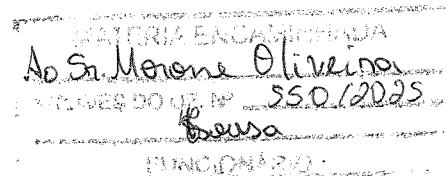 MATÉRIA ENCAMINHADA
Ao Sr. Morone Oliveira
ATRAVÉS DO OF. Nº 550/2025
Sousa
FUNCIONÁRIO